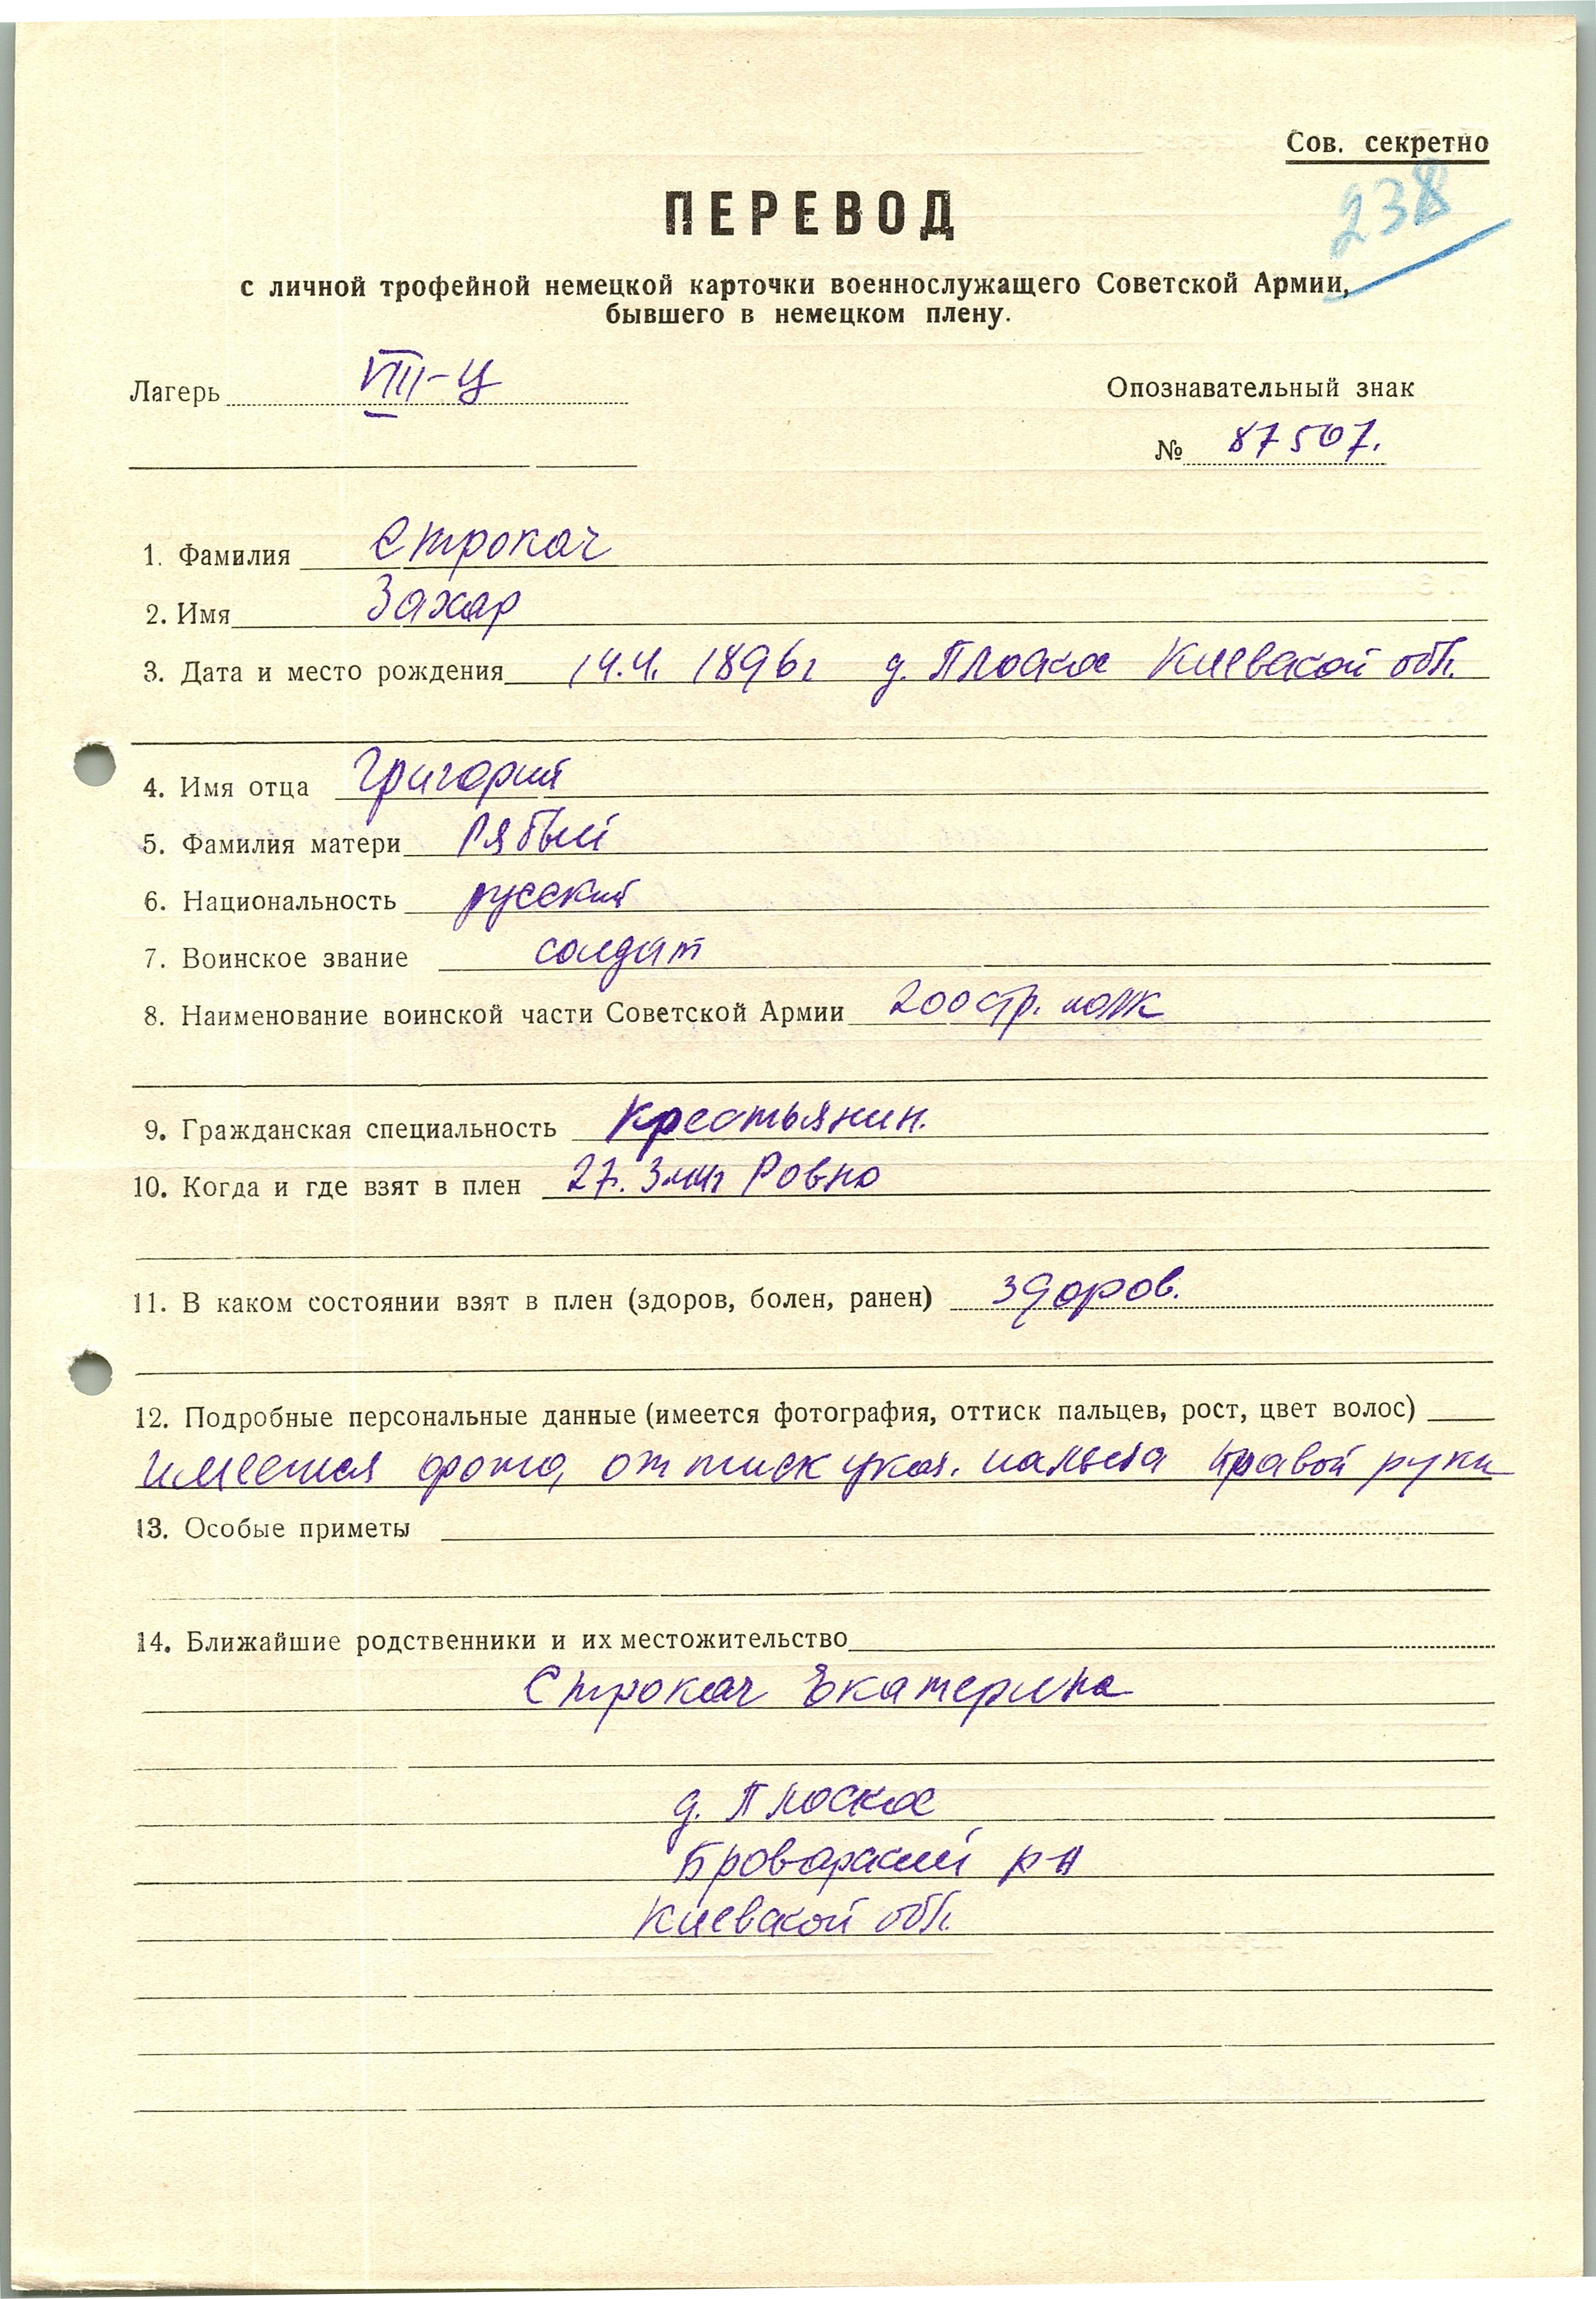 Сов. секретно
238
ПЕРЕВОД
с личной трофейной немецкой карточки военнослужащего Советской Армии,
бывшего в немецком плену.
Лагерь VIII-Ц
Опознавательный знак
№ 87507.
1. Фамилия Строкач
2. Имя Захар
3. Дата и место рождения 14.4. 1896г д. Плоское Киевской обл.
4. Имя отца Григорий
5. Фамилия матери Рябый
6. Национальность русский
7. Воинское звание солдат
8. Наименование воинской части Советской Армии 200 стр. полк
9. Гражданская специальность Крестьянин.
10. Когда и где взят в плен 27. Ровно
11. В каком состоянии взят в плен (здоров, болен, ранен) здоров.
12. Подробные персональные данные (имеется фотография, оттиск пальцев, рост, цвет волос)
имеется фото, оттиск указ. пальца правой руки
13. Особые приметы
14. Ближайшие родственники и их местожительство
Строкач Екатерина
д. Плоское
Броварский р-н
Киевской обл.